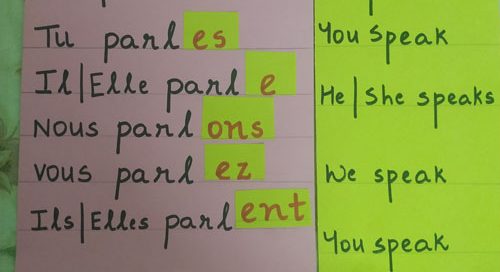 Tu parles
You speak
Il|Elle parle
He|She speaks
Nous parlons
We speak
vous parlez
You speak
Ils|Elles parlent